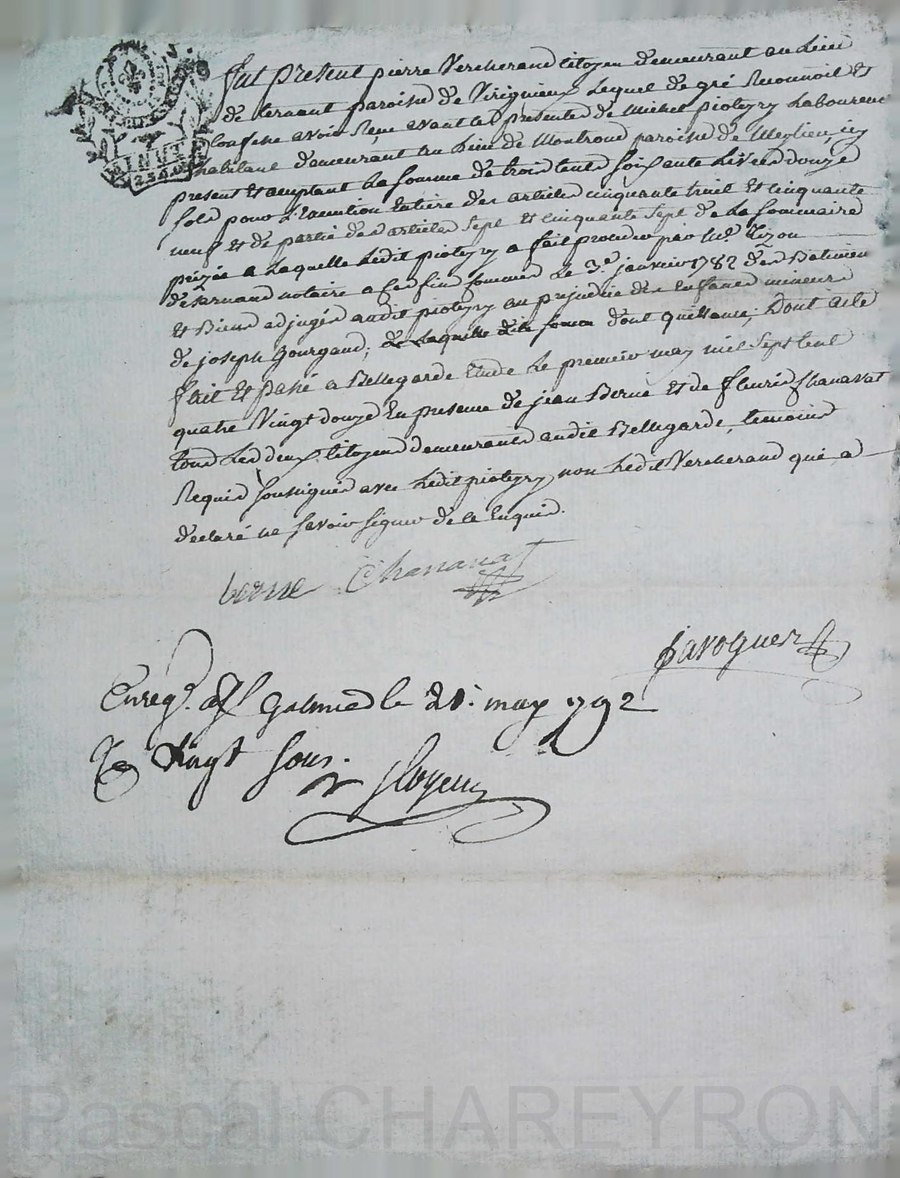 MINUT
fut present pierre Vercherand Citoyen demeurant au Lieu
de paroisse de Virignieux Lequel de gré Reconnoit et
Confesse avoir Reçu avant les presentes de Michel pioteyry Laboureur
habitant demeurant au Lieu de Montrond paroisse de Meylieu, icy
present et acceptant La somme de trois cents soixante Livres douze
sols pour L'Execution Entiere des articles cinquante huit et cinquante
neuf et de partie des articles sept et cinquante sept de La sommaire
prizée a Laquelle Ledit pioteyry a fait proceder par Me
notaire a ces fins sommés Le 3e janvier 1782 des Batimens
et Biens adjugés audit pioteyry au prejudice des Enfants mineurs
de joseph Gourgaud; de Laquelle dite somme dont quittance, Dont acte
fait et passé a Bellegarde Etude Le premier may mil sept cent
quatre Vingt douze En presence de jean Berne et de fleurie Chanavat
tous Les deux Citoyens demeurants audit Bellegarde, temoins
Requis soussignés avec Ledit pioteyry non Ledit Vercherand qui a
declaré ne savoir signer de ce Enquis.
berne Chanavat
javoguer
Enregé. a St Galmier le 21. may 1792
Re Vingt sous.
Pascal CHAREYRON